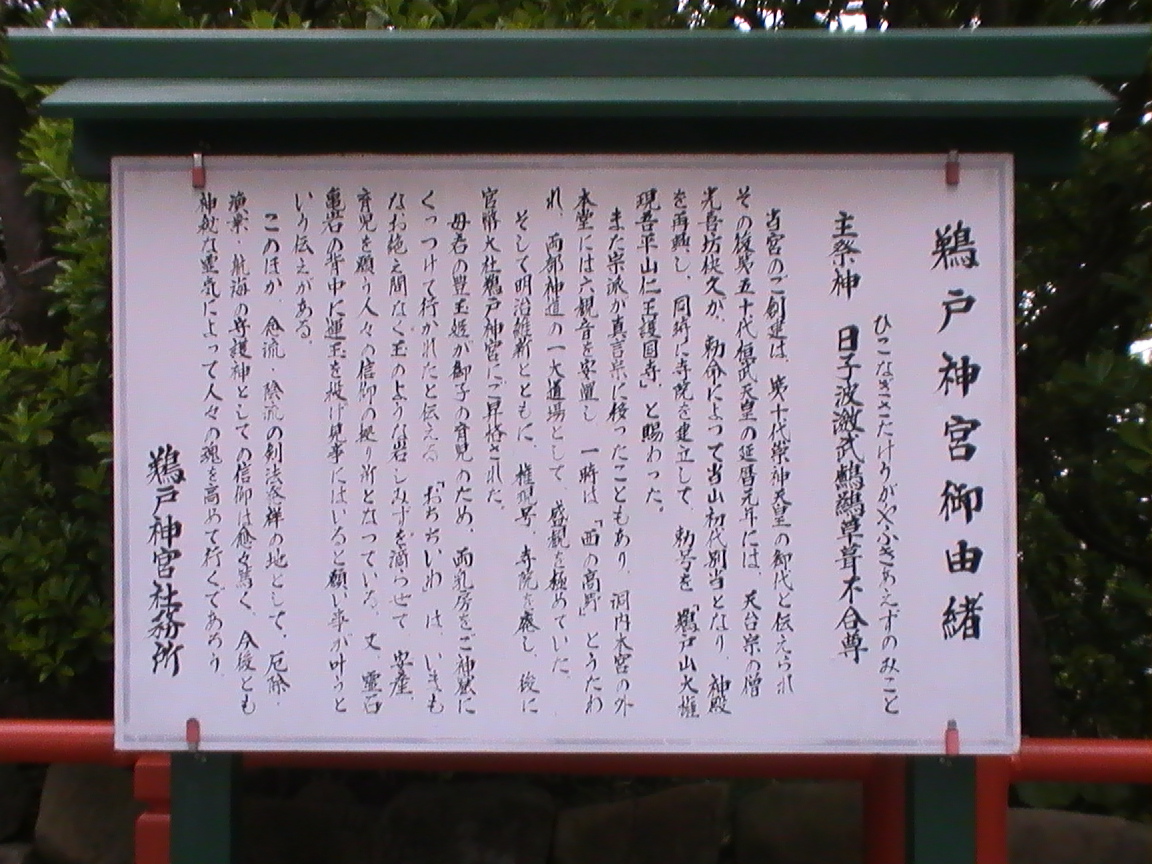 鵜戸神宮御由緒
ひこなぎさたけうがやふきあえずのみこと
主祭神 日子波瀲武鸕鷀草葺不合尊
当宮のご創建は、第十代崇神天皇の御代と伝えられ
その後第五十代桓武天皇の延暦元年には、天台宗の僧
光喜坊快久が、勅命によって当山初代別当となり、神殿
を再興し、同時に寺院を建立して、勅号を「鵜戸山大権
現吾平山仁王護国寺」と賜わった。
また宗派が真言宗に移ったこともあり、洞内本宮の外
本堂には六観音を安置し 一時は「西の高野」とうたわ
れ、両部神道の一大道場として、盛観を極めていた。
そして明治維新とともに、権現号、寺院を廃し、後に
官幣大社鵜戸神宮にご昇格された。
母君の豊玉姫が御子の育児のため、両乳房をご神窟に
くっつけて行かれたと伝える「おちちいわ」は、いまも
なお絶え間なく玉のような岩しみずを滴らせて、安産、
育児を願う人々の信仰の拠り所となっている。又、霊石
亀岩の背中に運玉を投げ見事にはいると願い事が叶うと
いう伝えがある。
このほか、念流・陰流の剣法発祥の地として、厄除、
漁業・航海の守護神としての信仰は愈々篤く、今後とも
神秘な霊気によって人々の魂を高めて行くであろう。
鵜戸神宮社務所